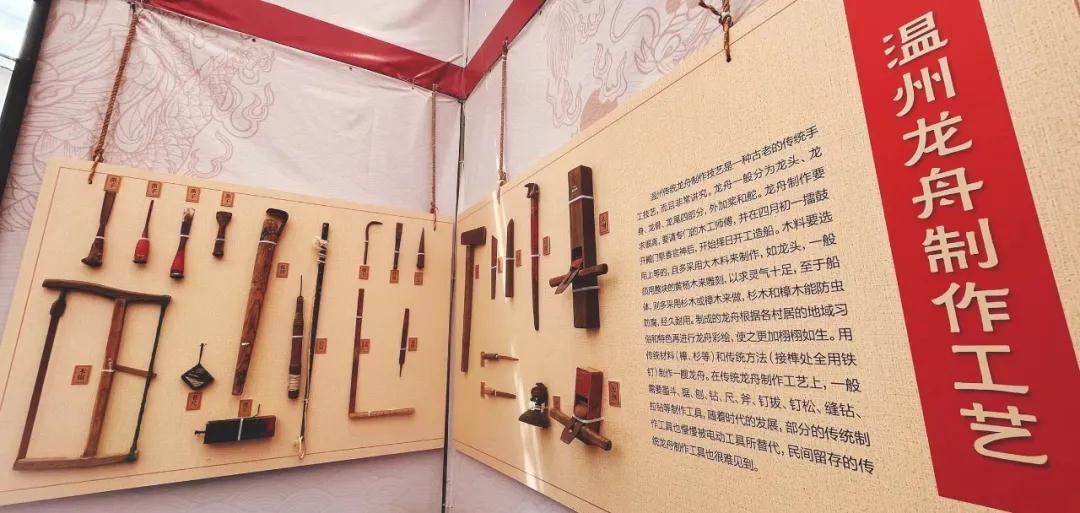 温州龙舟制作工艺
温州传统龙舟制作技艺是一种古老的传统手
工技艺，而且非常讲究。龙舟一般分为龙头、龙
身、龙骨、龙尾四部分，外加桨和舵。龙舟制作要
求很高，要请专门的木工师傅，并在四月初一擂鼓
开殿门祭香官神后，开始择日开工造船。木料要选
用上等的，且多采用大木料来制作，如龙头，一般
须用整块的黄杨木来雕刻，以求灵气十足，至于船
体，则多采用杉木或樟木来做，杉木和樟木能防虫
防腐，经久耐用。制成的龙舟根据各村居的地域习
俗和特色再进行龙舟彩绘，使之更加栩栩如生。用
传统材料（樟、杉等）和传统方法（接榫处全用铁
钉）制作一艘龙舟。在传统龙舟制作工艺上，一般
需要凿斗、锯、刨、钻、尺、斧、钉拔、钉松、缝钻、
拉钻等制作工具，随着时代的发展，部分的传统制
作工具也慢慢被电动工具所替代，民间留存的传
统龙舟制作工具也很难见到。
木锯